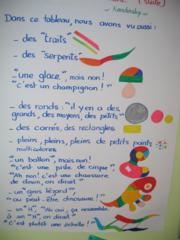 (suite)
Kandinsky -
Dans ce tableau, nous avons vu aussi :
- des "traits"
- des "serpents"
- "une glace", mais non !
"c'est un champignon !"
- des ronds : "il y en a des
grands, des moyens, des petits"
- des carrés, des rectangles
- pleins, pleins, pleins de petits points
multicolores
- "un ballon", mais non !
"c'est une piste de cirque"
"Ah non ! c'est une chaussure
de clown, on dirait"
- "un gros lézard"
"ou peut-être dinosaure !"
"Ah oui, ça ressemble
à un "H", on dirait"
"c'est plutôt une échelle !"